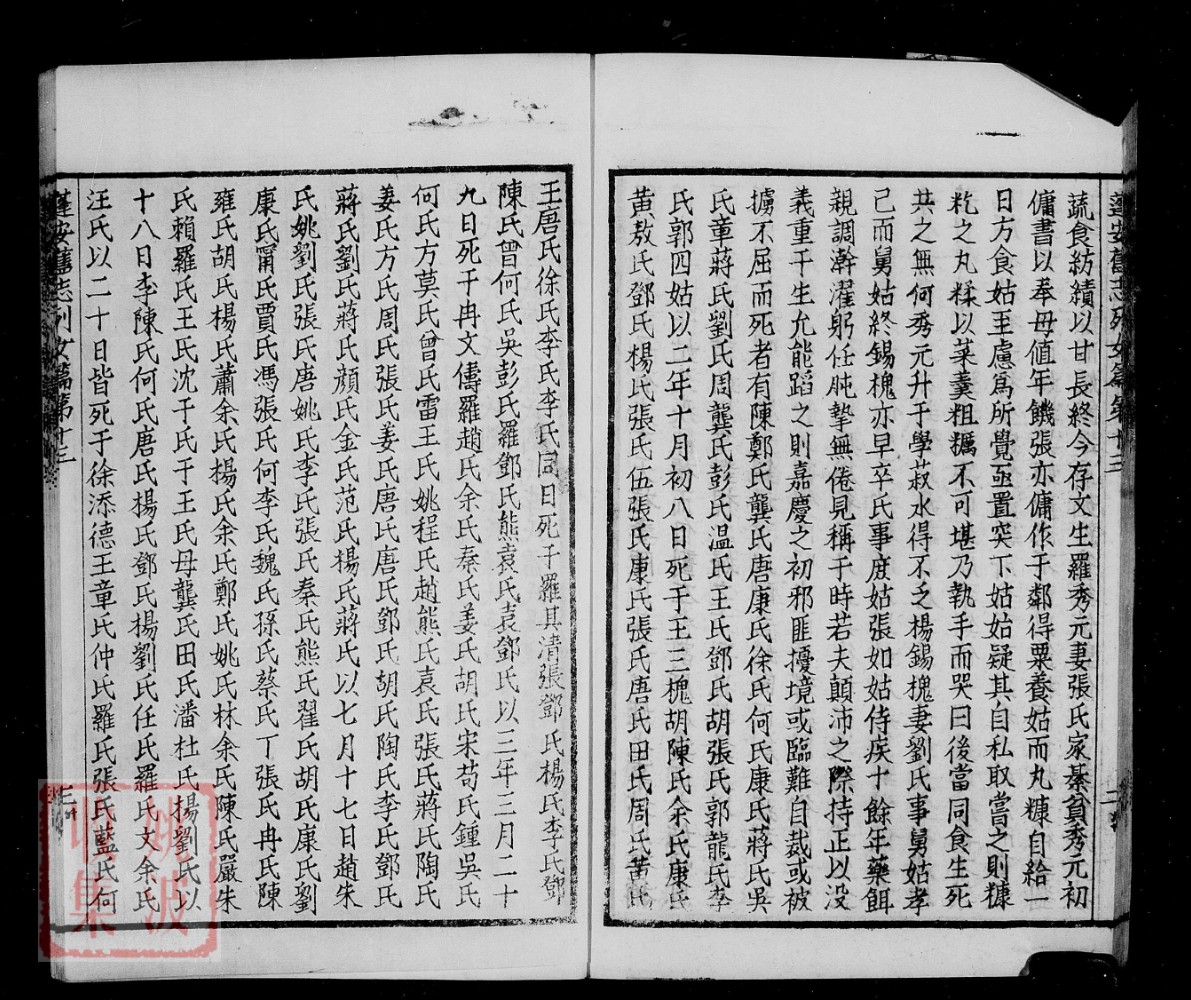 蔬食紡績以甘長終今存文生羅秀元妻張氏家綦貧秀元初
傭書以奉母值年饑張亦傭作于鄰得粟養姑而丸糠自給一
日方食姑至慮為所覺亟置突下姑疑其自私取嘗之則糠
籺之丸糅以菜羹粗糲不可堪乃執手而哭曰後當同食生死
共之無何秀元升于學菽水得不乏楊錫槐妻劉氏事舅姑孝
己而舅姑終錫槐亦早卒氏事庶姑張如姑侍疾十餘年藥餌
親調澣濯躬任肫摯無倦見稱于時若夫顛沛之際持正以没
義重于生允能蹈之則嘉慶之初邪匪擾境或臨難自裁或被
擄不屈而死者有陳鄭氏龔氏唐康氏徐氏何氏康氏蔣氏吳
氏章蔣氏劉氏周龔氏彭氏温氏王氏鄧氏胡張氏郭龍氏李
氏郭四姑以二年十月初八日死于王三槐胡陳氏余氏康氏
黄敖氏鄧氏楊氏張氏伍張氏康氏張氏唐氏田氏周氏黄氏
王唐氏徐氏李氏李氏同日死于羅其清張鄧氏楊氏李氏鄧
陳氏曾何氏吳彭氏羅鄧氏熊袁氏袁鄧氏以三年三月二十
九日死于冉文儔羅趙氏余氏秦氏姜氏胡氏宋苟氏鍾吳氏
何氏方莫氏曾氏雷王氏姚程氏趙熊氏袁氏張氏蔣氏陶氏
姜氏方氏周氏張氏姜氏唐氏唐氏鄧氏胡氏陶氏李氏鄧氏
蔣氏劉氏蔣氏顔氏金氏范氏楊氏蔣氏以七月十七日趙朱
氏姚劉氏張氏唐姚氏李氏張氏秦氏熊氏翟氏胡氏康氏劉
康氏甯氏賈氏馮張氏何李氏魏氏孫氏蔡氏丁張氏冉氏陳
雍氏胡氏楊氏蕭余氏楊氏余氏鄭氏姚氏林余氏陳氏嚴朱
氏賴羅氏王氏沈于氏于王氏母龔氏田氏潘杜氏楊劉氏以
十八日李陳氏何氏唐氏楊氏鄧氏楊劉氏任氏羅氏文余氏
汪氏以二十日皆死于徐添德王章氏仲氏羅氏張氏藍氏何
蓬安舊志列女篇第十三
姚波
收集